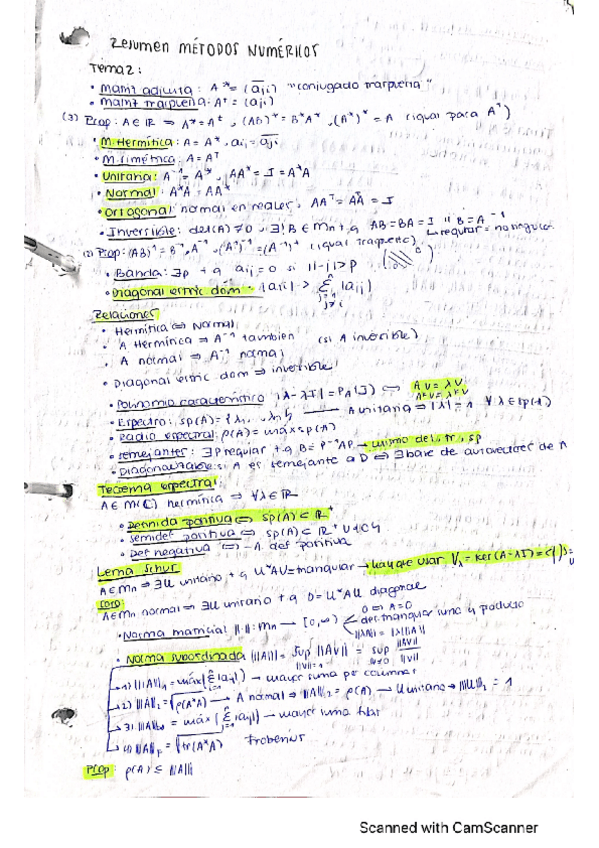 Resumen MÉTODOS NUMÉRICOS
Tema 2:
• Matriz adjunta: A* = (a̅ji) "conjugado traspuesta"
• Matriz traspuesta: Aᵗ = (aji)
(3) Prop: A ∈ ℝ ⇒ A* = Aᵗ , (AB)* = B*A* , (A*)* = A (igual para Aᵗ)
• M. Hermítica: A = A* , aij = a̅ji
• M. simétrica: A = Aᵗ
• Unitaria: A⁻¹ = A* , AA* = I = A*A
• Normal: A*A = AA*
• Ortogonal: normal en reales, AAᵗ = AᵗA = I
• Inversible: det(A) ≠ 0 , ∃! B ∈ Mn t.q AB = BA = I // B = A⁻¹
↳ regular = no singular
(2) Prop: (AB)⁻¹ = B⁻¹A⁻¹ , (Aᵗ)⁻¹ = (A⁻¹)ᵗ (igual traspuesta)
• Banda: ∃p t.q aij = 0 si |i-j| > p
• Diagonal estric dom: |aii| > Σ |aij|
j=1 j≠i
Relaciones
• Hermítica ⇔ Normal
• A Hermítica ⇒ A⁻¹ también (si A inversible)
• A normal ⇒ A⁻¹ normal
• Diagonal estric dom ⇒ inversible
• Polinomio característico |A-λI| = PA(λ) ⇔ AV = λV
• Espectro: sp(A) = {λ1, ..., λn} → A unitaria ⇒ |λ| = 1 ∀ λ ∈ sp(A)
• Radio espectral: ρ(A) = máx sp(A)
• Semejantes: ∃P regular t.q B = P⁻¹AP → mismo det, tr, sp
• Diagonalizable: si A es semejante a D ⇔ ∃ base de autovectores de A
Teorema espectral:
A ∈ M(ℂ) hermítica ⇒ ∀λ ∈ ℝ
• Definida positiva ⇔ sp(A) ⊂ ℝ⁺
• Semidef positiva ⇔ sp(A) ⊂ ℝ⁺ ∪ {0}
• Def negativa ⇔ -A def positiva
Lema Schur
A ∈ Mn ⇒ ∃U unitaria t.q U*AU = triangular → hay que usar Vλ = Ker(A-λI)
Coro:
A ∈ Mn normal ⇒ ∃U unitaria t.q D = U*AU diagonal
0 ⇔ A = 0
• Norma matricial ||·||: Mn → [0,∞) des. triangular suma y producto
||λA|| = |λ| ||A||
• Norma subordinada ||A|| = sup ||Av|| = sup ||Av|| / ||v||
||v||=1 v≠0
1) ||A||₁ = máx (Σ |aij|) → mayor suma por columnas
2) ||A||₂ = √ρ(A*A) → A normal ⇒ ||A||₂ = ρ(A) → U unitaria ⇒ ||U||₂ = 1
3) ||A||∞ = máx (Σ |aij|) → mayor suma filas
4) ||A||F = √tr(A*A) Frobenius
Prop: ρ(A) ≤ ||A||
Scanned with CamScanner